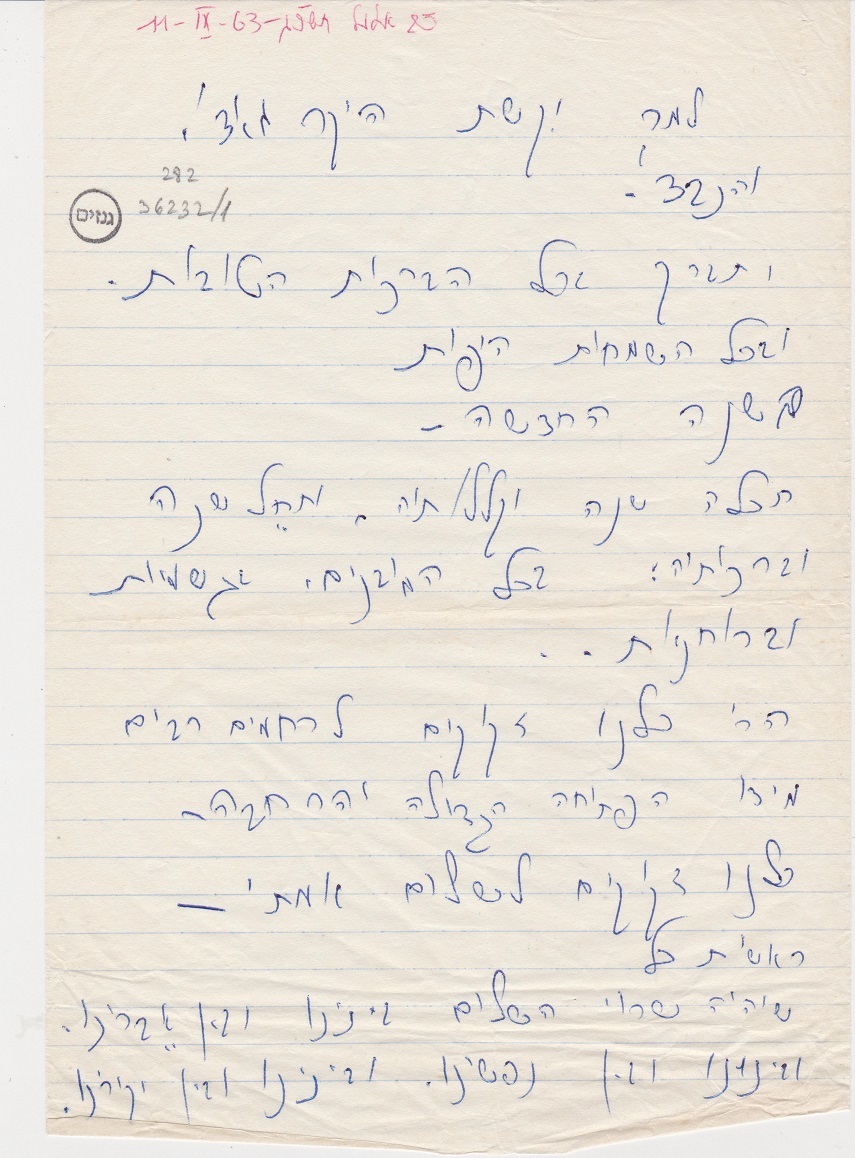 11-IX-63 - תשכ"ג אלול 25
למר יקשת היקר
והנבצ'-
282
36232/1
גנזים
ותברך בכל הברכות הטובות.
ובכל השמחות היפות
בשנה החדשה –
תכלה שנה וקללותיה. ותחל שנה
וברכותיה: בכל המובנים. בגשמיות
וברוחניות..
הרי כלנו זקוקים לרחמים רבים
מידו הפתוחה הגדולה והרחבה –
כלנו זקוקים לשלום אמתי –
ראשית כל
שיהיה שרוי השלום בינינו ובין אֲברינו.
ובינינו ובין נפשינו. ובינינו ובין יקירנו.